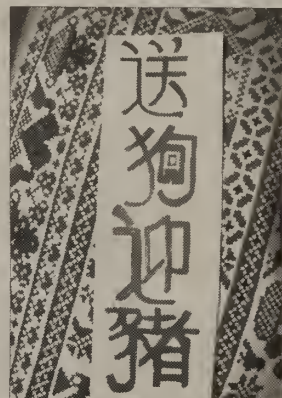 送狗迎豬